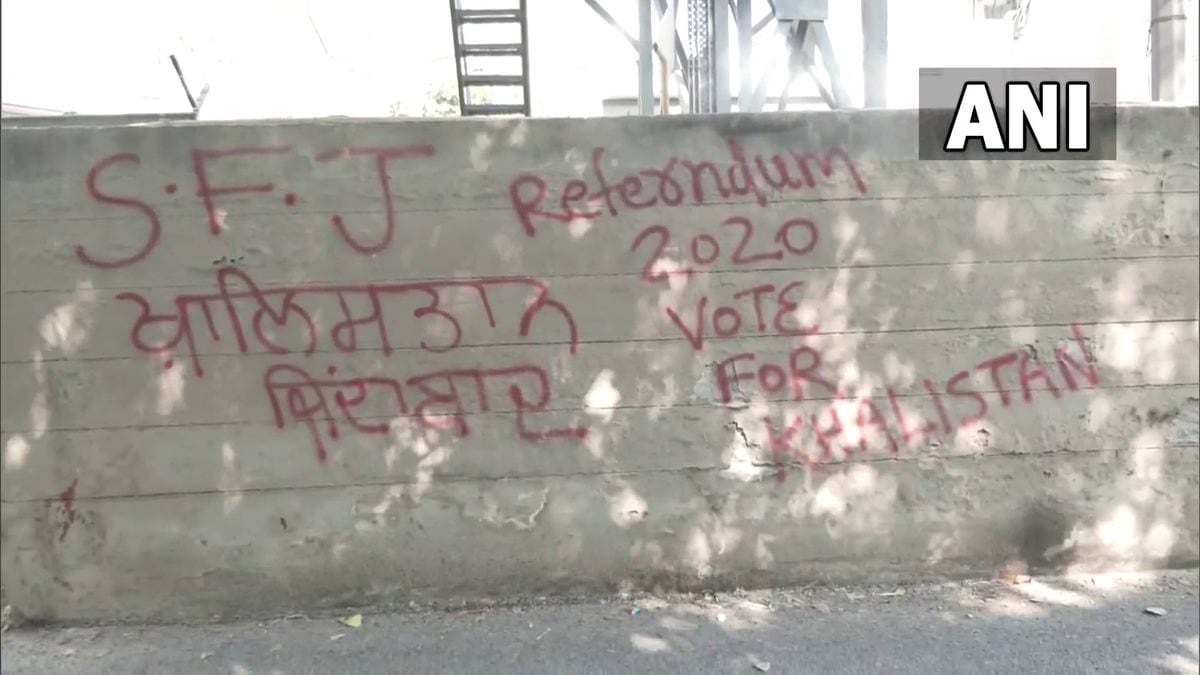 ANI
S.F.J
Referndum
2020
ਖ਼ਾਲਿਸਤਾਨ
ਜ਼ਿੰਦਾਬਾਦ
VOTE
FOR
KHALISTAN